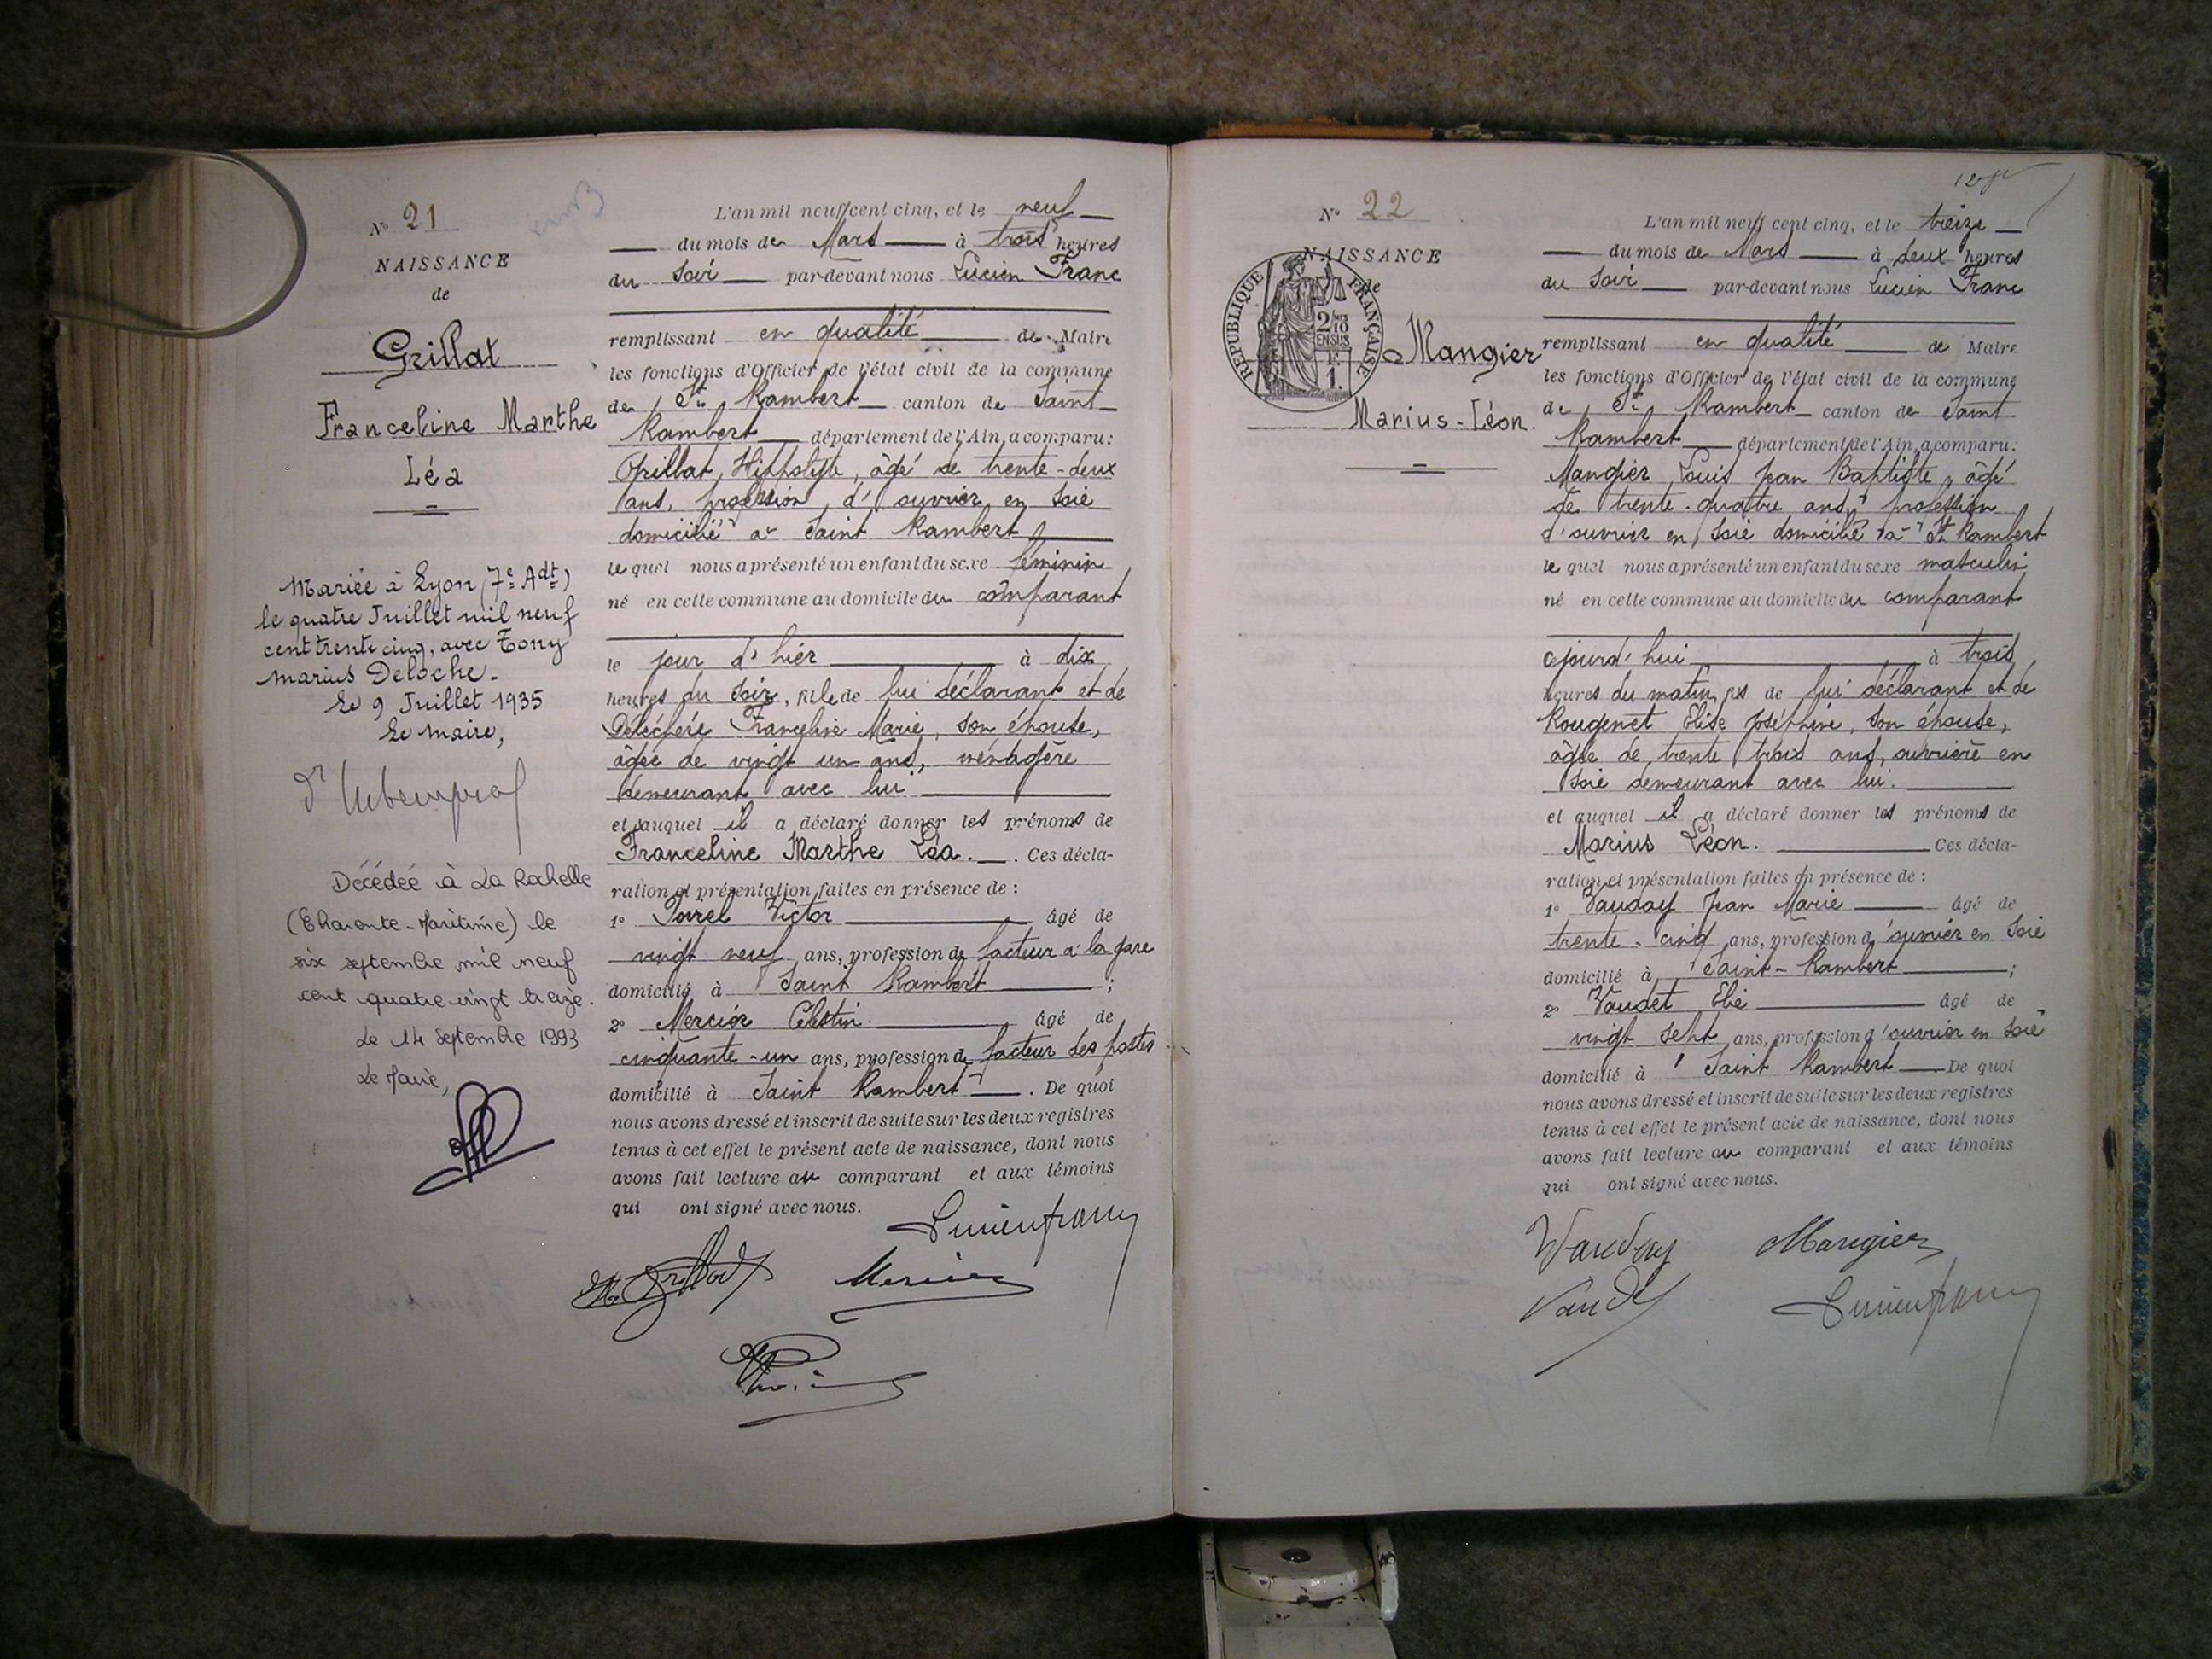 N° 21
NAISSANCE
de
Grillat
Franceline Marthe
Léa
Mariée à Lyon (7e Adt)
le quatre Juillet mil neuf
cent trente cinq, avec Tony
Marius Deloche.
Le 9 Juillet 1935
Le Maire,
Décédée à La Rochelle
(Charente-Maritime) le
six septembre mil neuf
cent quatre vingt treize.
Le 14 Septembre 1993
Le Maire,
L'an mil neuf cent cinq, et le neuf
du mois de Mars à trois heures
du soir par-devant nous Lucien Franc
remplissant en qualité de Maire
les fonctions d'Officier de l'état civil de la commune
de St Rambert canton de Saint
Rambert département de l'Ain, a comparu:
Grillat, Hippolyte, âgé de trente-deux
ans, profession, d'ouvrier en soie
domicilié à Saint Rambert
le quel nous a présenté un enfant du sexe féminin
né en cette commune au domicile du comparant
le jour d'hier à dix
heures du soir, fille de lui déclarant et de
Franceline Marie, son épouse,
âgée de vingt un ans, ménagère
demeurant avec lui
et auquel il a déclaré donner les prénoms de
Franceline Marthe Léa. Ces décla-
ration et présentation faites en présence de :
1° Victor âgé de
vingt neuf ans, profession de facteur à la gare
domicilié à Saint Rambert ;
2° Mercier Célestin âgé de
cinquante-un ans, profession de facteur des postes
domicilié à Saint Rambert. De quoi
nous avons dressé et inscrit de suite sur les deux registres
tenus à cet effet le présent acte de naissance, dont nous
avons fait lecture au comparant et aux témoins
qui ont signé avec nous.
Lucien Franc
H Grillat Mercier
N° 22
NAISSANCE
de
RÉPUBLIQUE FRANÇAISE
2/10
EN SUS
1 F.
Mangier
Marius-Léon.
L'an mil neuf cent cinq, et le treize
du mois de Mars à deux heures
du soir par-devant nous Lucien Franc
remplissant en qualité de Maire
les fonctions d'Officier de l'état civil de la commune
de St Rambert canton de Saint
Rambert département de l'Ain, a comparu:
Mangier, Louis Jean Baptiste, âgé
de trente-quatre ans, profession
d'ouvrier en soie domicilié à St Rambert
le quel nous a présenté un enfant du sexe masculin
né en cette commune au domicile du comparant
ajourd'hui à trois
heures du matin, fils de lui déclarant et de
Rougenet Elise Joséphine, son épouse,
âgée de trente trois ans, ouvrière en
soie demeurant avec lui.
et auquel il a déclaré donner les prénoms de
Marius Léon. Ces décla-
ration et présentation faites en présence de :
1° Vauday Jean Marie âgé de
trente-cinq ans, profession d'ouvrier en soie
domicilié à Saint-Rambert ;
2° Vaudet Elie âgé de
vingt sept ans, profession d'ouvrier en soie
domicilié à Saint Rambert De quoi
nous avons dressé et inscrit de suite sur les deux registres
tenus à cet effet le présent acte de naissance, dont nous
avons fait lecture au comparant et aux témoins
qui ont signé avec nous.
Vauday Mangier
Lucien Franc